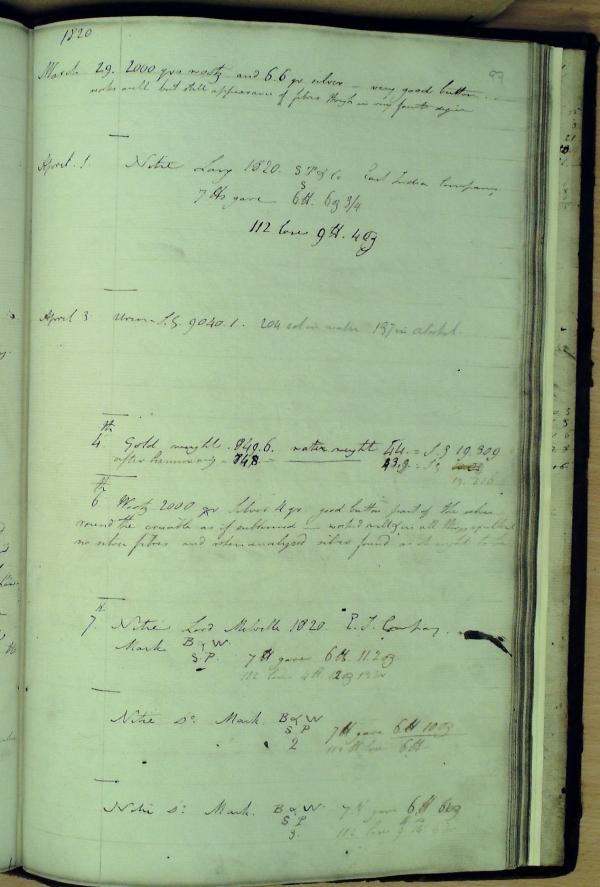 1820
93
March 29. 2000 grs wootz and 6.6 gr silver - very good button
works well but still appearance of fibres though in very faint degree
April. 1 Nitre Lary 1820. S P & Co East India Company
S
7 lbs gave 6 lb. 6 oz 3/4
112 lose 9 lb. 4 oz
April 3 S.G. 9040.1. 204 in water 187 in alcohol
th
4 Gold weight . 849.6. water weight 44. = S.G 19.309
after hammering - 848 - 43.9 = S.G
19.316
th
6 Wootz 2000 gr Silver 4 gr. good button part of the silver
round the crucible as if sublimed - worked well & in all things
no silver fibres and when analysed silver found
th
7. Nitre Lord Melville 1820. E. I. Company.
Mark B & W
S P. 7 lb gave 6 lb. 11.2 oz
112 lose 4 lb.
Nitre Do Mark. B & W
S P
2
7 lb gave 6 lb 10 oz
112 lb lose 6 lb
Nitre Do Mark. B & W
S P
3.
7 lb gave 6 lb
112 lose 9 lb